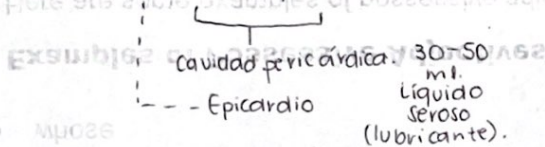 cavidad pericárdica. 30-50
ml.
Líquido
seroso
(lubricante).
- - - Epicardio